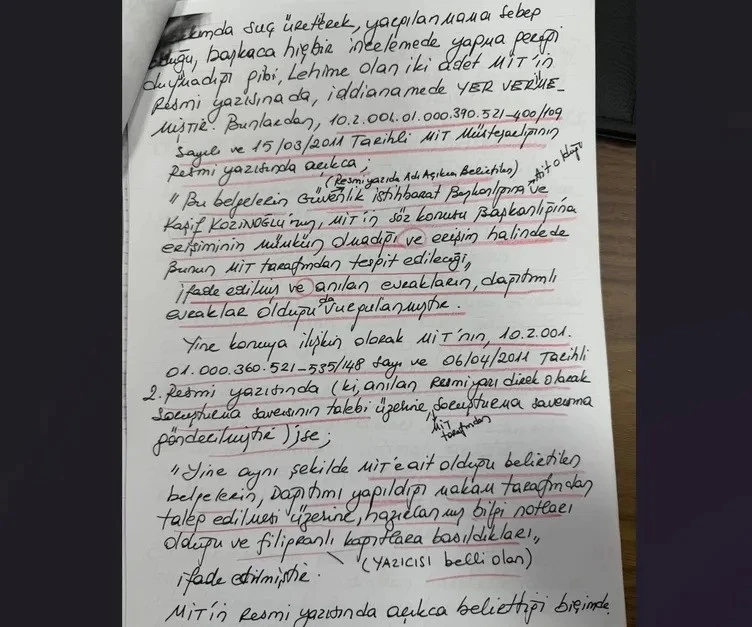 suç üreterek, yargılanmama sebep
başkaca hiçbir incelemede yapma gereği
duymadığı gibi, Lehime olan iki adet MİT'in
Resmi yazısınada, iddianamede YER VERME-
MİŞTİR. Bunlardan, 10.2.001.01.000.390.521-400/109
Sayılı ve 15/03/2011 Tarihli MİT Müsteşarlığının
Resmi yazısında açıkca;
(Resmi yazıda Adı Açıkca Belirtilen) Ait olduğu
" Bu belgelerin Güvenlik istihbarat Başkanlığına ve
Kaşif KOZİNOĞLU'nun, MİT'in söz konusu Başkanlığına
erişiminin mümkün olmadığı ve erişim halinde de
Bunun MİT tarafından tespit edileceği,,
ifade edilmiş ve anılan evrakların, dağıtımlı
evraklar olduğu da vurgulanmıştır.
Yine konuya ilişkin olarak MİT'nin, 10.2.001.
01.000.360.521-535/148 Sayı ve 06/04/2011 Tarihli
2. Resmi yazısında (ki, anılan Resmi yazı direk olarak
Soruşturma savcısının talebi üzerine, soruşturma savcısına
MİT tarafından
gönderilmiştir) ise;
" Yine aynı şekilde MİT'e ait olduğu belirtilen
belgelerin, Dağıtımı yapıldığı makam tarafından
talep edilmesi üzerine, hazırlanmış bilgi notları
olduğu ve filigranlı kağıtlara basıldıkları,,
(YAZICISI belli olan)
ifade edilmiştir.
MİT'in Resmi yazısında açıkca belirttiği biçimde